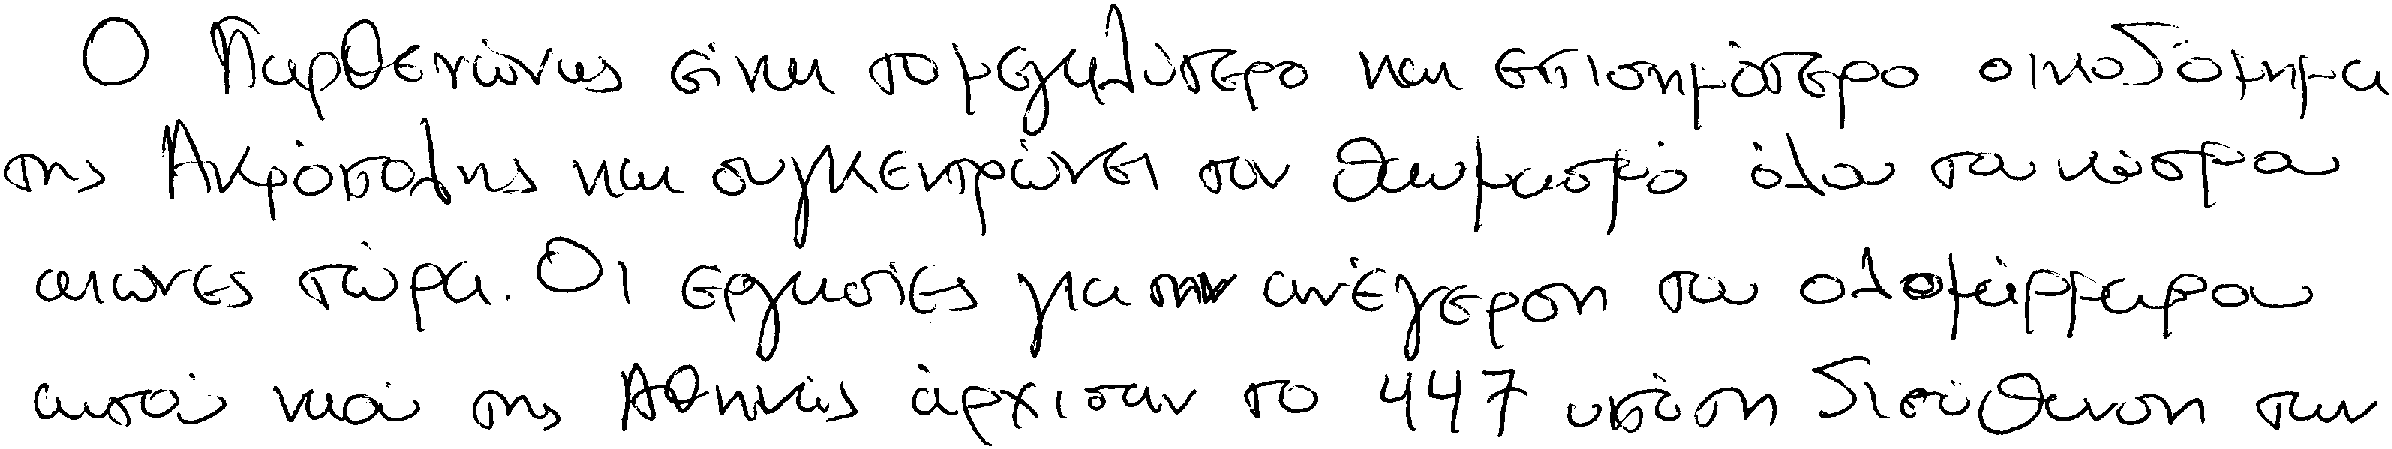 Ο Παρθενώνας είναι το μεγαλύτερο και επισημότερο οικοδόμημα
της Ακρόπολης και συγκεντρώνει τον θαυμασμό όλου του κόσμου
αιώνες τώρα. Οι εργασίες για την ανέγερση του ολομάρμαρου
αυτού ναού της Αθηνάς άρχισαν το 447 υπό τη διεύθυνση των